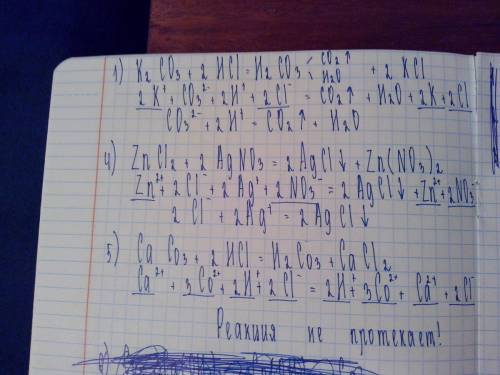 1) K₂CO₃ + 2 HCl = H₂CO₃ < CO₂↑ H₂O + 2 KCl
2 K⁺ + CO₃²⁻ + 2H⁺ + 2Cl⁻ = CO₂↑ + H₂O + 2K + 2Cl
CO₃²⁻ + 2 H⁺ = CO₂↑ + H₂O
4) ZnCl₂ + 2 AgNO₃ = 2 AgCl↓ + Zn(NO₃)₂
Zn²⁺ + 2 Cl⁻ + 2 Ag⁺ + 2 NO₃⁻ = 2 AgCl↓ + Zn²⁺ + 2NO₃⁻
2 Cl⁻ + 2Ag⁺ = 2 AgCl↓
5) CaCO₃ + 2HCl = H₂CO₃ + CaCl₂
Ca²⁺ + 3CO²⁺ + 2H⁺ + 2Cl⁻ = 2H⁺ + 3CO²⁺ + Ca²⁺ + 2Cl⁻
Реакция не протекает!